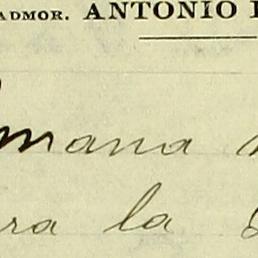 ADMOR. ANTONIO
mana
ra la